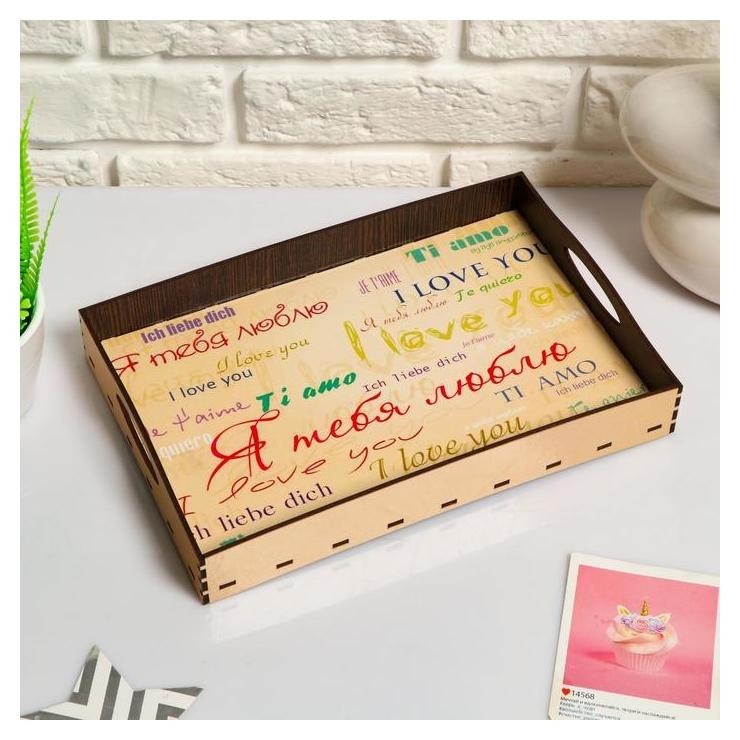 Ti amo
JE T'AIME
I LOVE YOU
Ich liebe dich
Я тебя люблю
Я тебя люблю
Te quiero
I love you
I love you
Je t'aime
I love you
Ti amo
Ich liebe dich
Я тебя люблю
TI AMO
Ich liebe dich
t'aime
quiero
I love you
I love you
liebe dich
14568